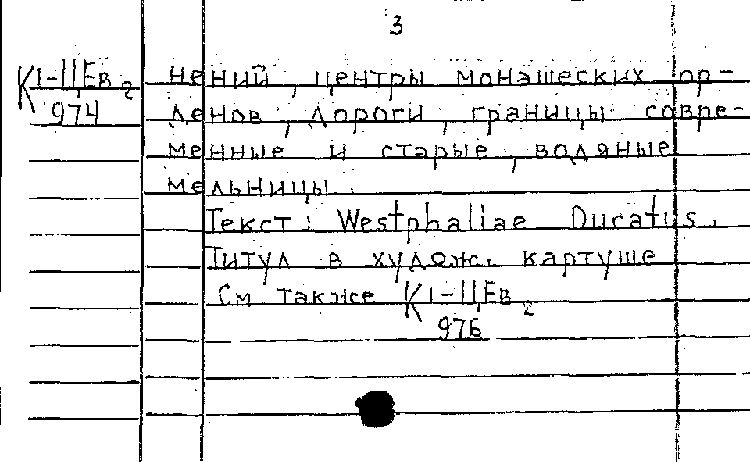 3
К1-ЦЕв 2
974
нений, центры монашеских ор-
денов, дороги, границы совре-
менные и старые, водяные
мельницы.
Текст: Westphaliae Ducatus.
Титул в худож. картуше
См также К1-ЦЕв 2
976